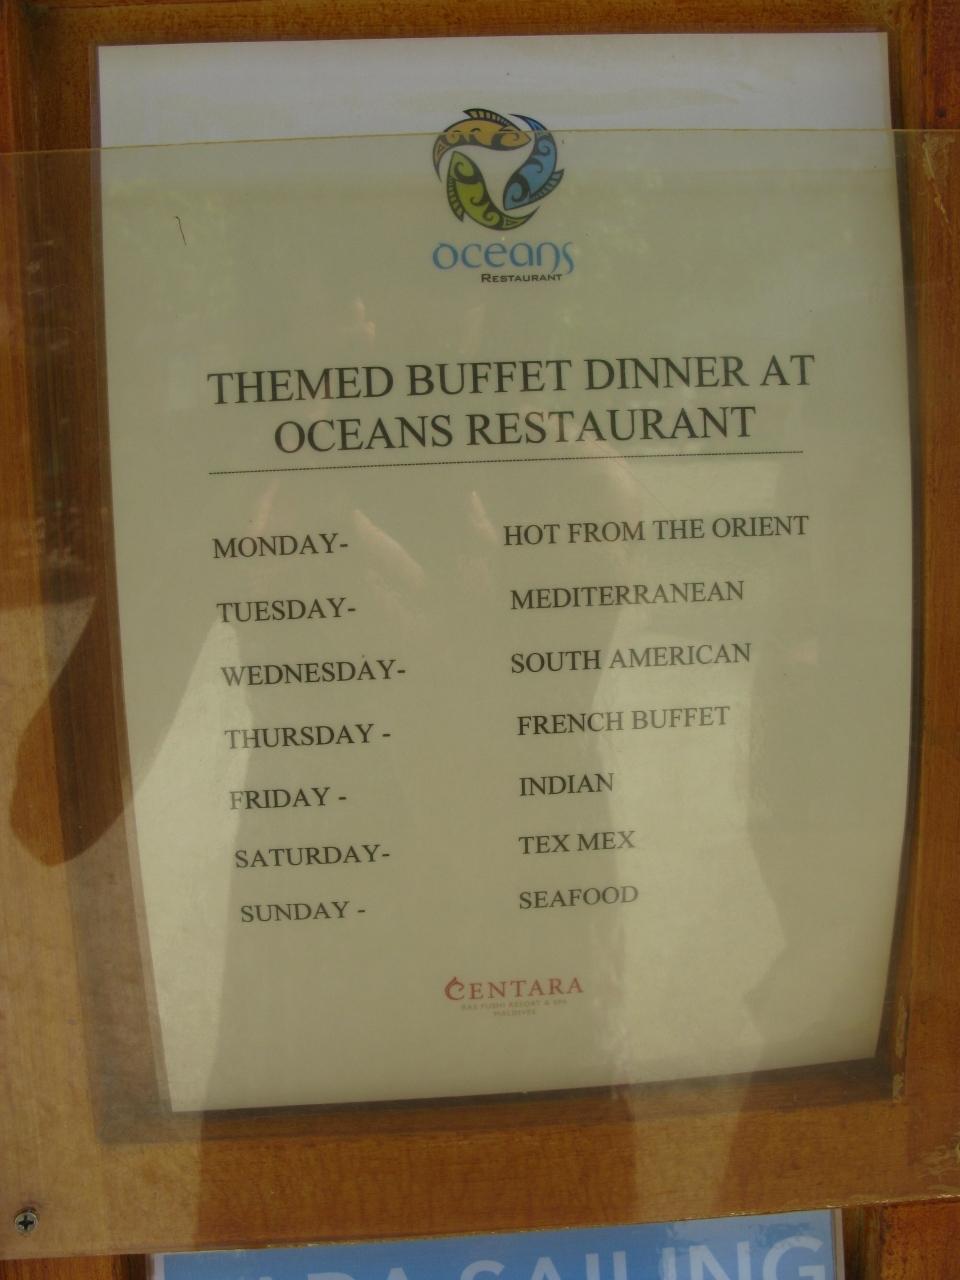 oceans
RESTAURANT
THEMED BUFFET DINNER AT
OCEANS RESTAURANT
MONDAY- HOT FROM THE ORIENT
TUESDAY- MEDITERRANEAN
WEDNESDAY- SOUTH AMERICAN
THURSDAY - FRENCH BUFFET
FRIDAY - INDIAN
SATURDAY- TEX MEX
SUNDAY - SEAFOOD
CENTARA
RAS FUSHI RESORT & SPA
MALDIVES
SAILING